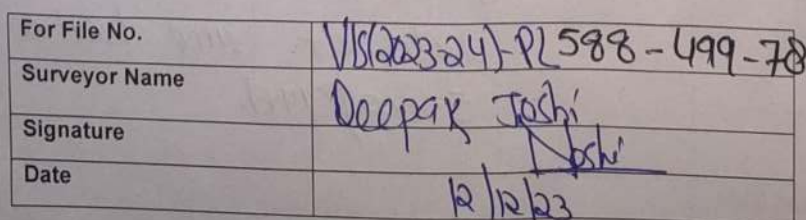 For File No. VIS(2023-24)-PL588-499-78
Surveyor Name Deepak Joshi
Signature Joshi
Date 12/12/23